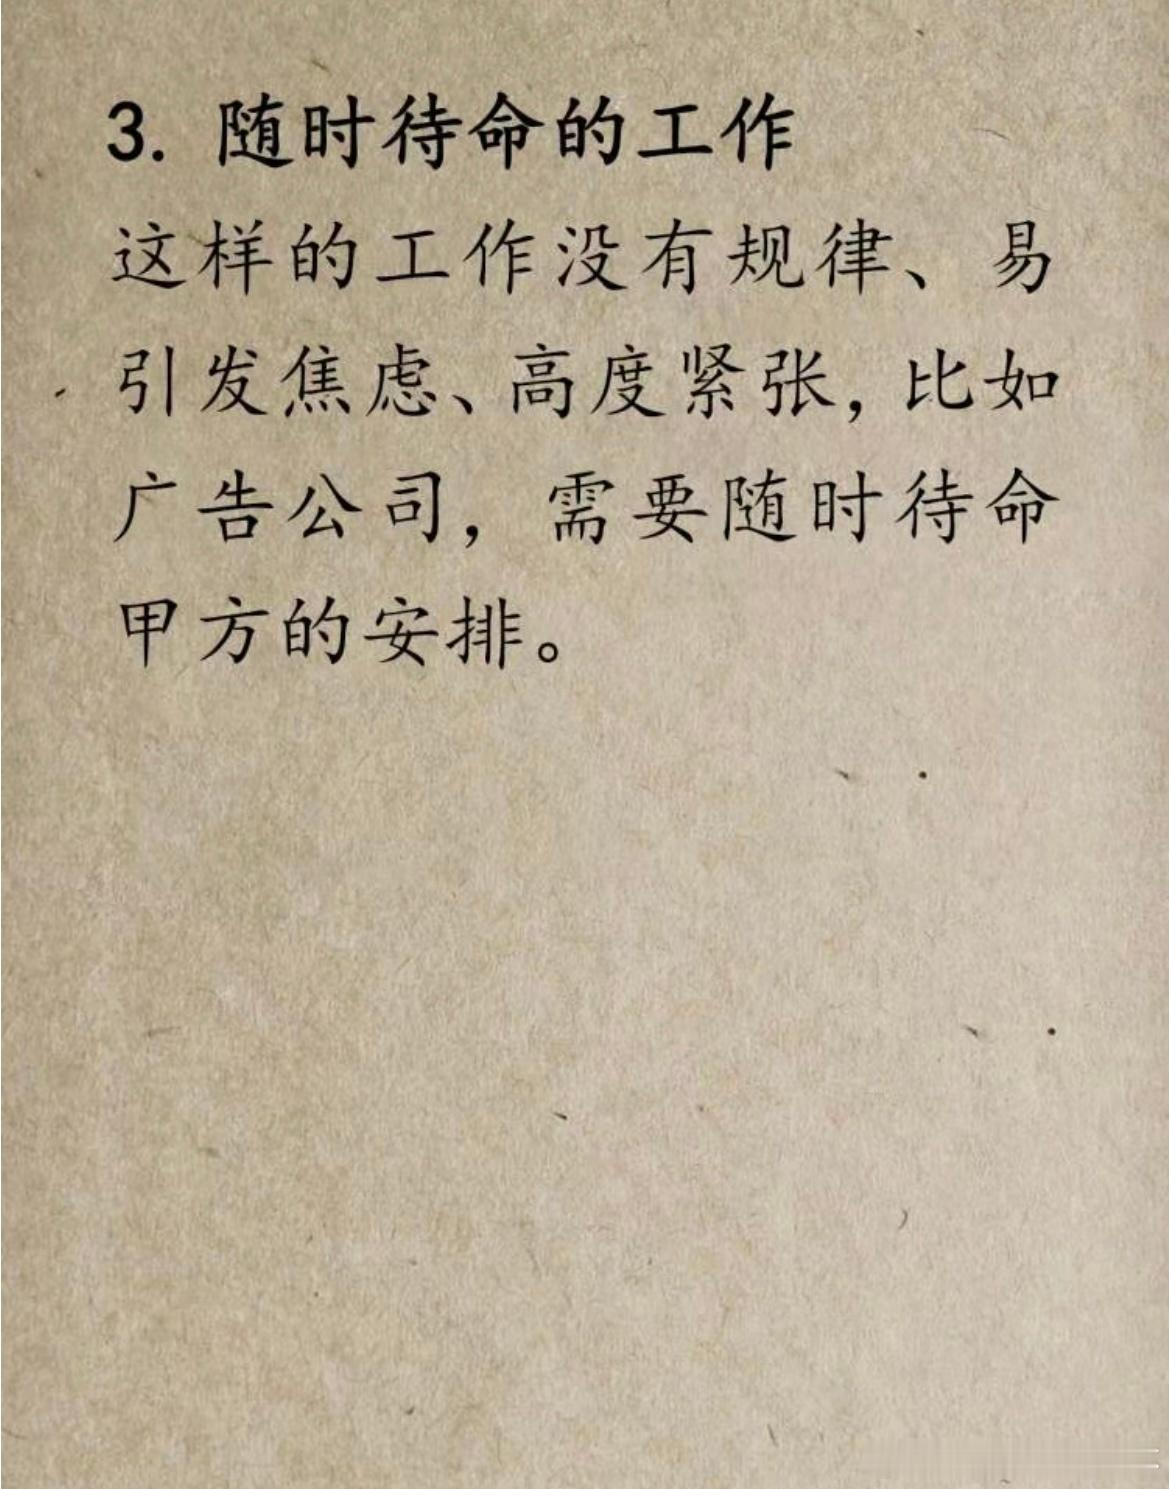 3. 随时待命的工作
这样的工作没有规律、易
引发焦虑、高度紧张，比如
广告公司，需要随时待命
甲方的安排。